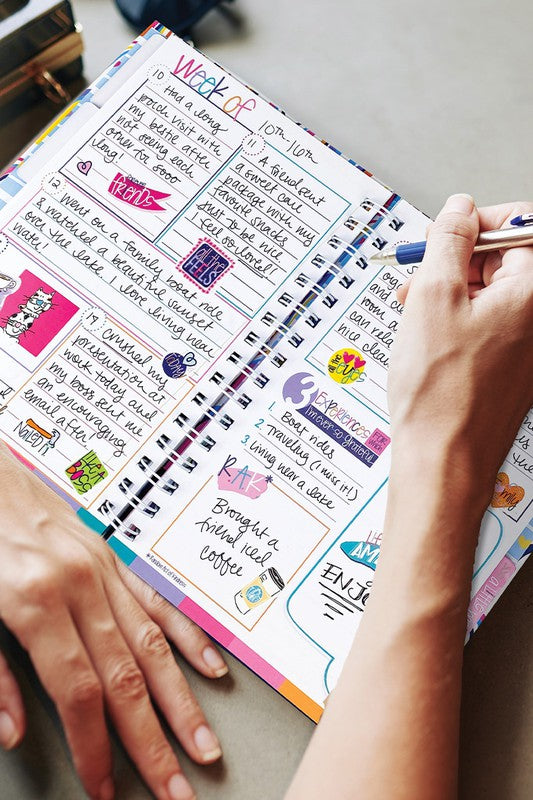 week of
10th-16th
10
Had a long
porch visit with
my bestie after
not seeing each
other for sooo
long!
friends
11
A friend sent
a sweet care
package with my
favorite snacks
just to be nice
I feel so loved!
all the
FEELS
12
Went on a family boat ride
& watched a beautiful sunset
over the lake. I love living near
water!
14
Crushed my
presentation at
work today and
my boss sent me
an encouraging
email after!
Nailed it
LIKE A
BOSS
room
and
can rela
nice clea
all the
3
Experiences
I'm over so grateful
1. Boat rides
2. Traveling (I miss it!)
3. Living near a lake
RAK
Brought a
friend iced
coffee
*Random Act of Kindness
LIFE
AMA
ENJOY
family
a little